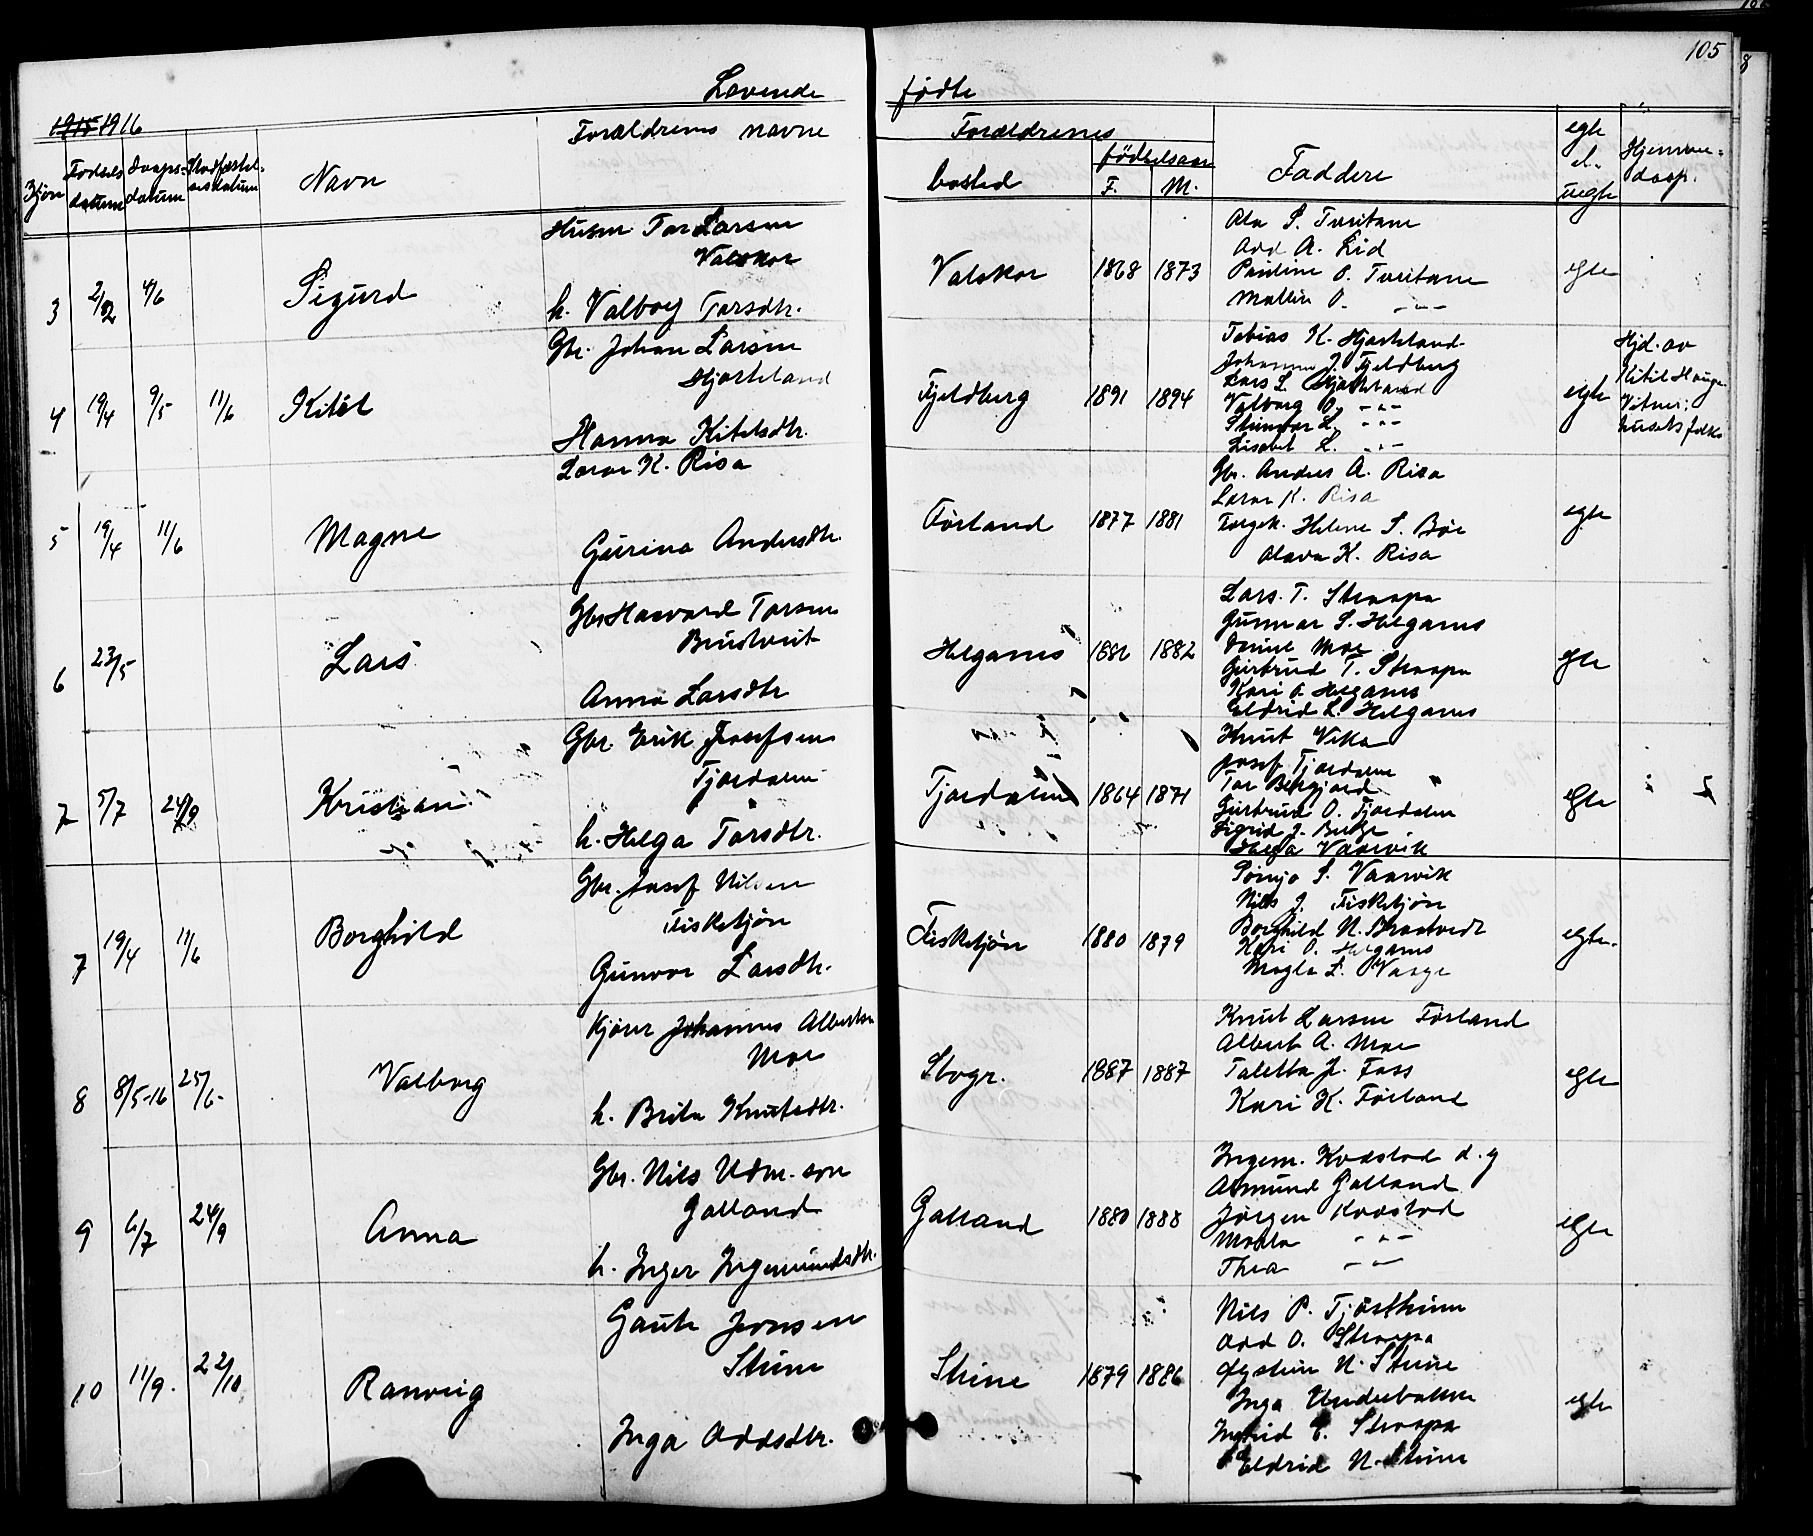 105
Levende fødte
1915 1916
No
Fødsels datum
Daaps- datum
Stadfæstel- ses datum
Navn
Forældrenes navne
Forældrenes
bosted
fødselsaar
F. M.
Faddere
egte el. uegte
Hjemme- daap.
3 2/2 4/6
Sigurd
Husm. Tor Larsen
Valskor
h. Valborg Torsdtr.
Valskor 1868 1873
Ola S. Tveitane
Odd A. Lid
Pauline O. Tveitane
Mallin O. -„-
egte
4 19/4 9/5 11/6
Kitel
Gbr. Johan Larsen
Hjorteland
Hanna Kitelsdtr.
Fjeldberg 1891 1894
Tobias K. Hjorteland
Johannes J. Fjeldberg
Lars L. Hjorteland
Valborg O. -„-
Steinvor L. -„-
Lisabet L. -„-
egte
Hjd. av
Kitil Hauge
Vitner:
husets folk
5 19/4 11/6
Magne
Lars K. Risa
Gurina Andersdtr.
Førland 1877 1881
Gbr. Anders A. Risa
Lars K. Risa
Helene S. Bøe
Olava K. Risa
egte
6 23/5
Lars
Gbr. Haavard Torsen
Brustveit
Anna Larsdtr
Helganes 1881 1882
Lars T. Straapa
Gunnar S. Helganes
Daniel Moe
Gurtrud T. Straapa
Kari O. Helganes
Eldrid L. Helganes
egte
7 5/7 24/9
Kristian
Gbr. Erik Josefsen
Tjordalen
h. Helga Torsdtr.
Tjordalen 1864 1871
Knut Vika
Josef Tjordalen
Tor Bergjord
Gurtrud O. Tjordalen
Sigrid J.
Helga Vaarvik
egte
7 19/4 11/6
Borghild
Gbr. Josef Nilsen
Fisketjøn
Gunvor Larsdtr.
Fisketjøn 1880 1879
Sønja S. Vaarvik
Nils J. Fisketjøn
Borghild N. Braatvedt
Kari O. Helganes
Magla L. Vaage
egte.
8 8/5-16 25/6-
Valborg
Kjører Johannes Albertsen
Moe
h. Brita Knutsdtr.
Stogr. 1887 1887
Knut Larsen Førland
Albert A. Moe
Taletta J. Foss
Kari K. Førland
egte
9 6/7 24/9
Anna
Gbr. Nils Adm. son
Galland
h. Inger Ingemundsdtr.
Galland 1880 1888
Ingem. Kvdstod d. y
Asmund Galland
Jørgen Kvdstod
Magla -„-
Thea -„-
egte
10 11/9. 22/10
Ranveig
Gaute Jonsen
Steine
Inga Oddsdtr.
Steine 1879 1886
Nils P. Tjøstheim
Odd O. Straapa
Øystein N. Steine
Inga Underbakke
Ingrid E. Straapa
Eldrid N. Steine
egte